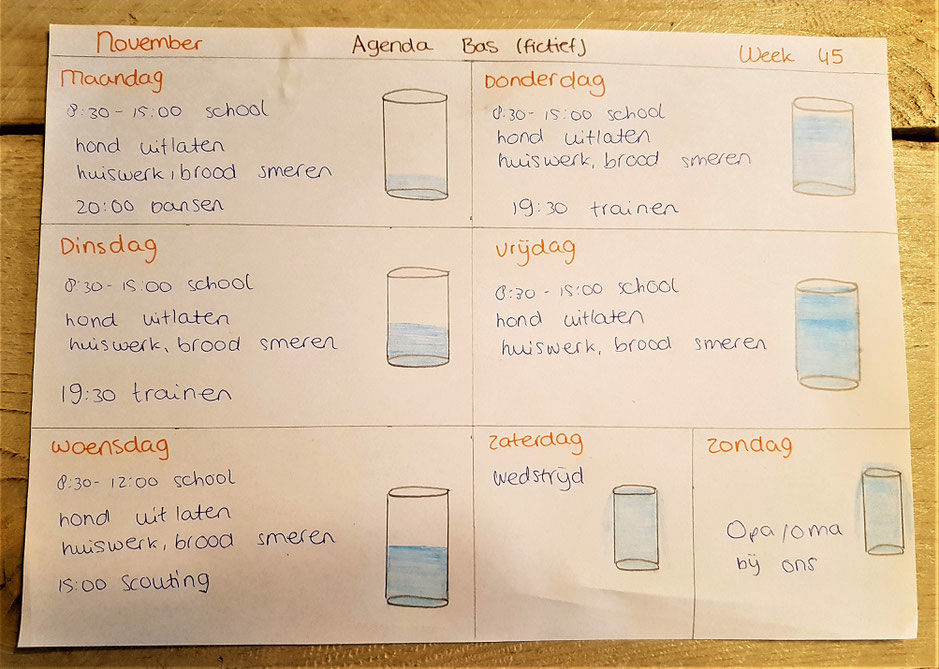 November
Agenda Bas (fictief)
Week 45
Maandag
8:30 - 15:00 school
hond uitlaten
huiswerk, brood smeren
20:00 Dansen
Dinsdag
8:30 - 15:00 school
hond uitlaten
huiswerk, brood smeren
19:30 trainen
Woensdag
8:30 - 12:00 school
hond uitlaten
huiswerk, brood smeren
15:00 Scouting
Donderdag
8:30 - 15:00 school
hond uitlaten
huiswerk, brood smeren
19:30 trainen
Vrijdag
8:30 - 15:00 school
hond uitlaten
huiswerk, brood smeren
Zaterdag
Wedstrijd
Zondag
Opa/oma
bij ons